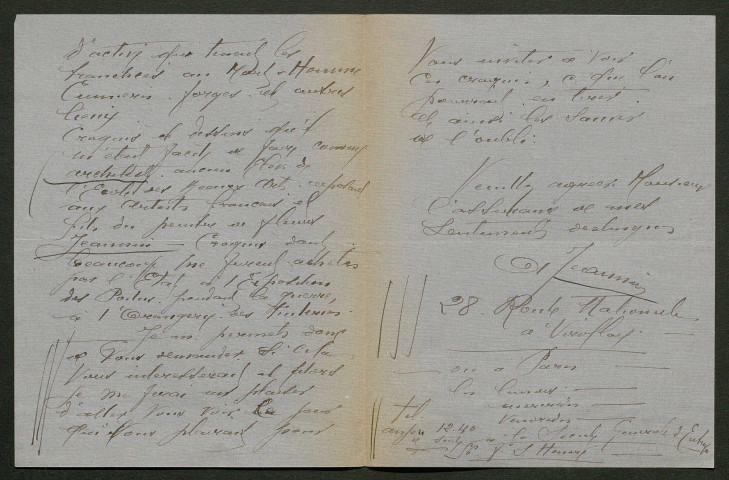 d'activ que travail les
tranchées au Mort Homme
Cumières. Forges. et autres
lieux
Croquis et dessins qu'il
m'était facile de faire comme
architecte. ancien élève de
l'Ecole des Beaux Arts. exposant
aux Artistes Français et
fils du peintre de fleurs
Jeannin — Croquis dont
beaucoup me furent achetés
par l'Etat à l'Exposition
des Poilus. pendant la guerre,
à l'Orangerie des Tuileries.
Je me permets donc
de vous demander si cela
vous intéresserait et alors
je me ferai un plaisir
d'aller vous voir le jour
qui vous plairait pour
Vous inviter à voir
ces croquis, ce que l'on
pourrait en tirer.
et ainsi les sauver
de l'oubli.
Veuillez agréer Monsieur
l'assurance de mes
sentiments distingués
Jeannin
28. Route Nationale
à Viroflay
ou à Paris
les lundis
mercredis
vendredis
tel
anjou 12.40
à la Société Générale d'Entrep
Bd St Honoré